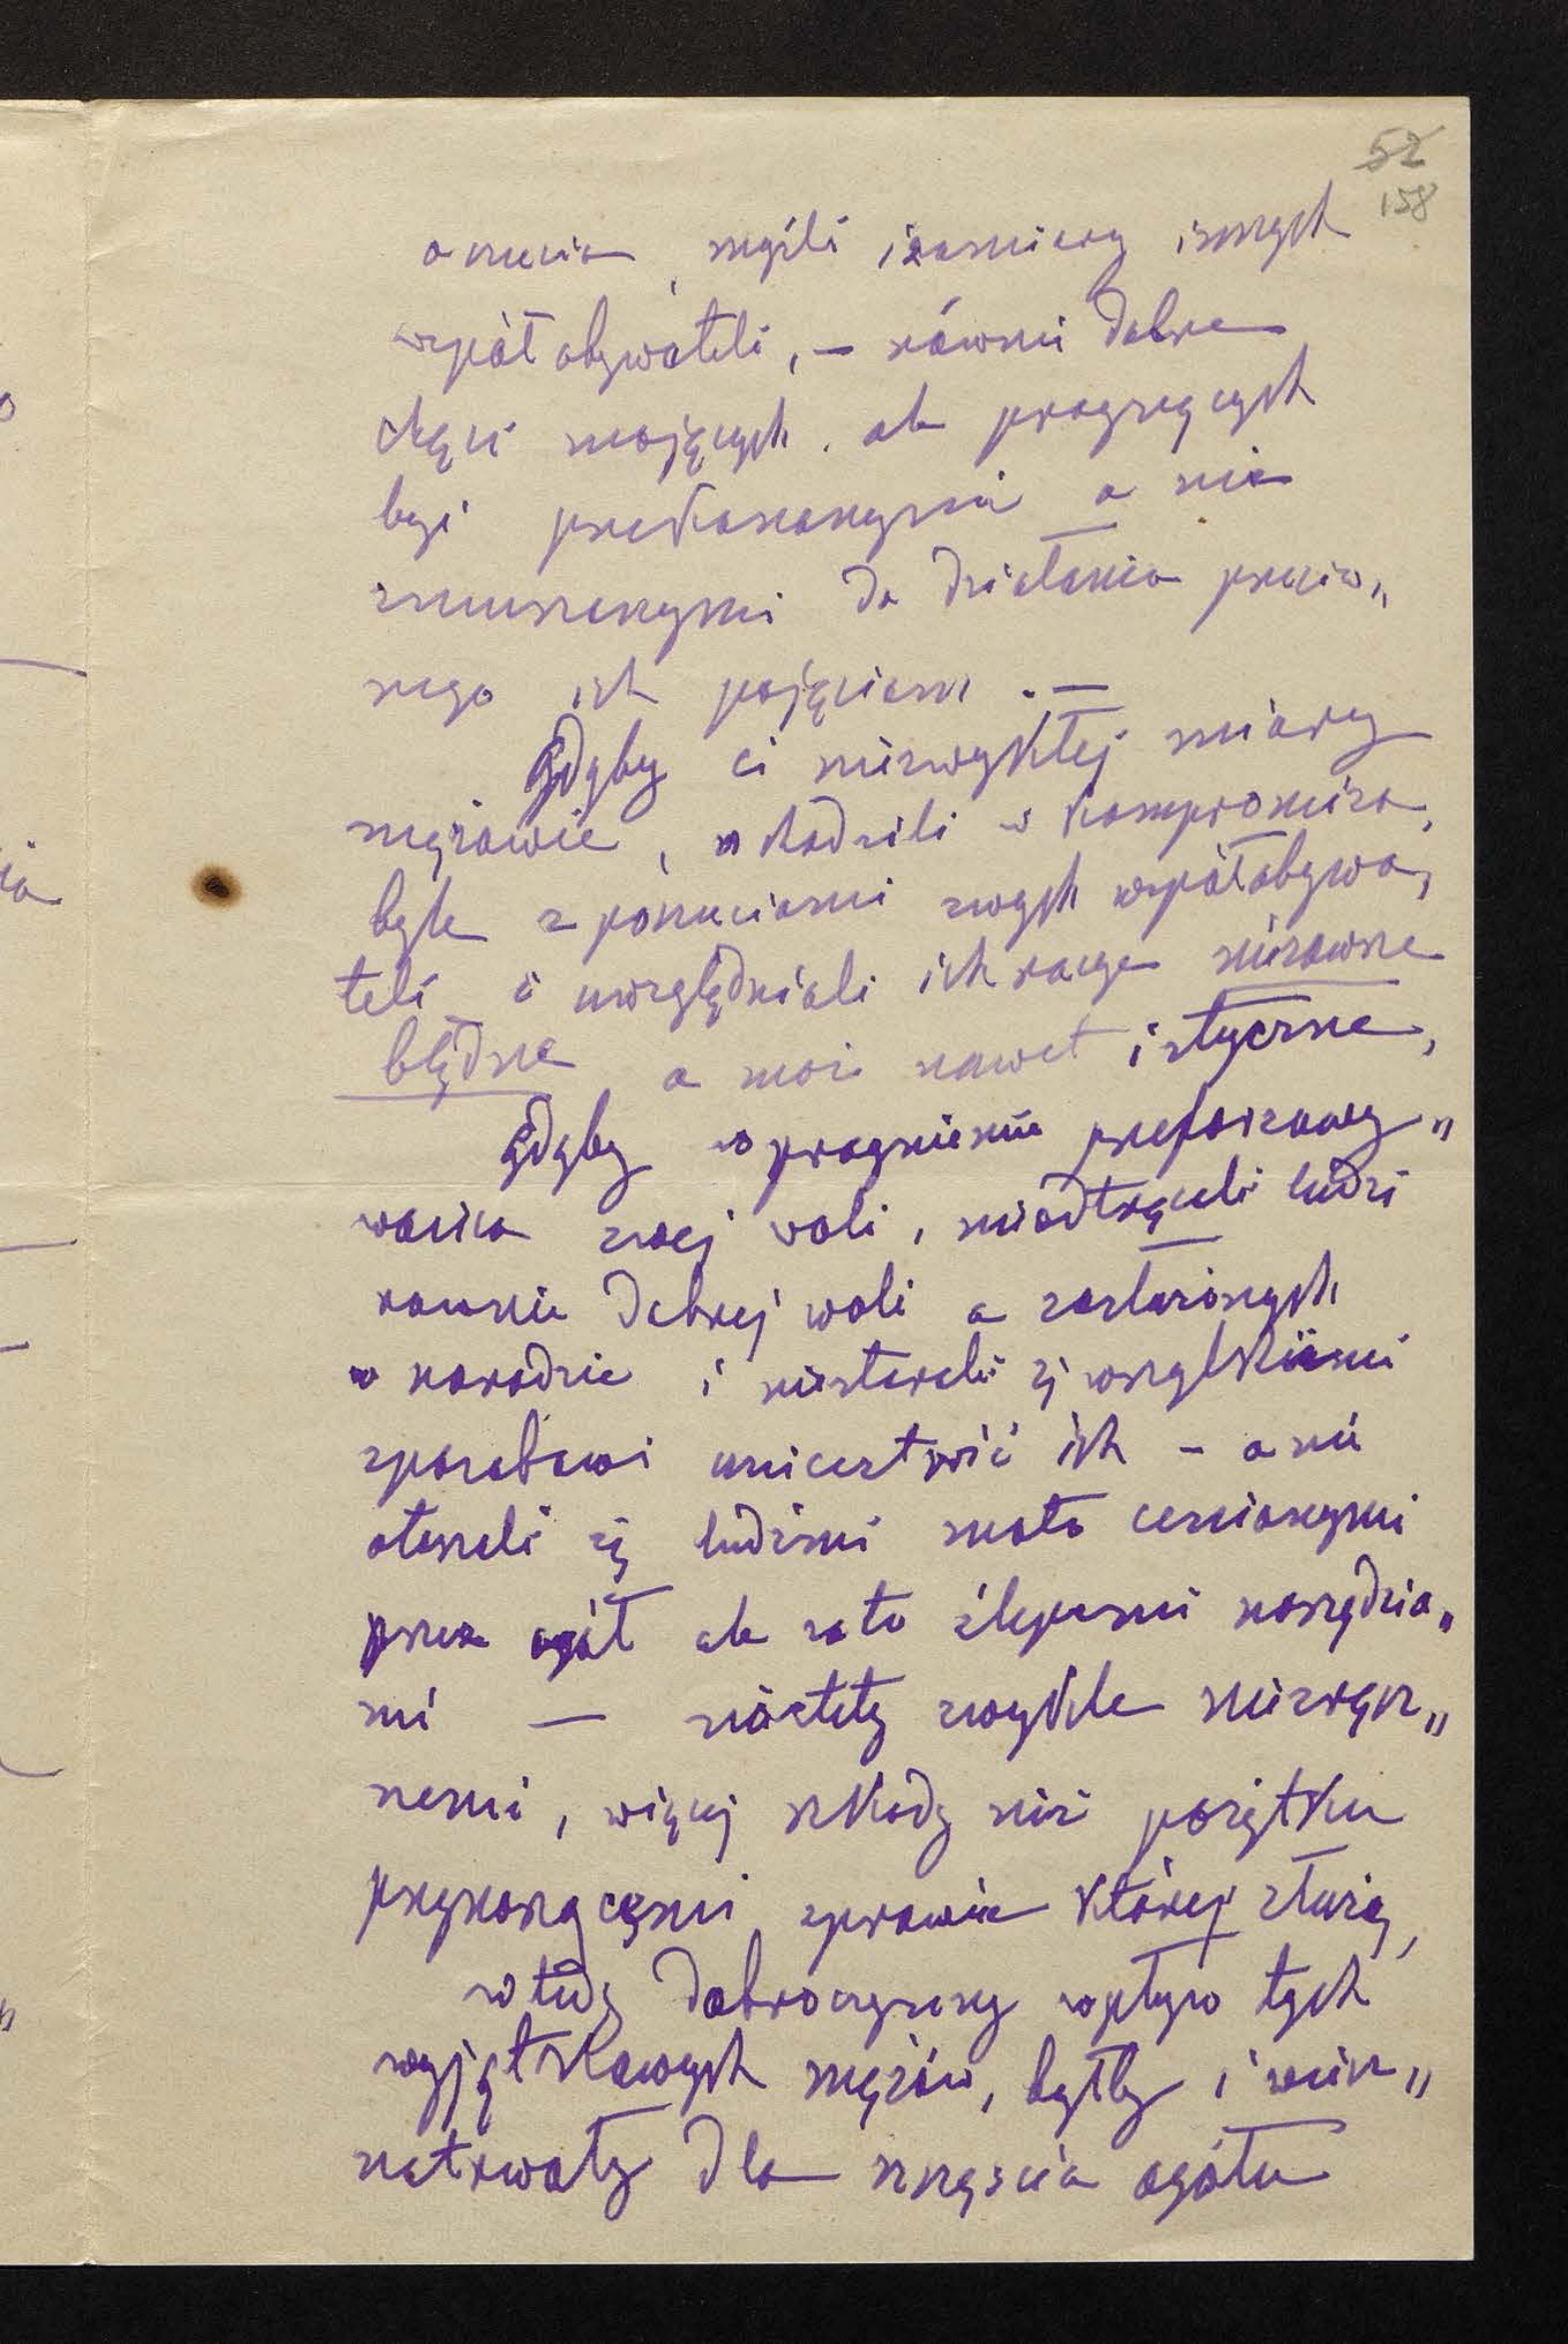 52
158
o uczucia, myśli i zamiary innych
współobywateli, – równie dobre
chęci mających, ale pragnących
być przekonanymi a nie
zmuszanymi do działania przeciw„
nego ich pojęciom. –
Gdyby ci niezwykłej miary
mężowie, wchodzili w kompromisa,
byle z poczuciami swych współobywa„
teli i uwzględniali ich racye niezawsze
błędne a może nawet i słyczne,
Gdyby w pragnieniu przeforsowy„
wania swej woli, nieodtrącali ludzi
równie dobrej woli a zasłużonych
w narodzie i niestarali się wszelkiemi
sposobami unicestwić ich – a nie
otaczali się ludźmi mało cenionymi
przez ogół ale za to ślepemi narzędzia„
mi — niestety zwykle niezręcz„
nemi, więcej szkody niż pożytku
przynoszącemi sprawie której służą,
wtedy dobroczynny wpływ tych
wyjątkowych mężów, byłby i wiecz„
notrwały dla szczęścia ogółu